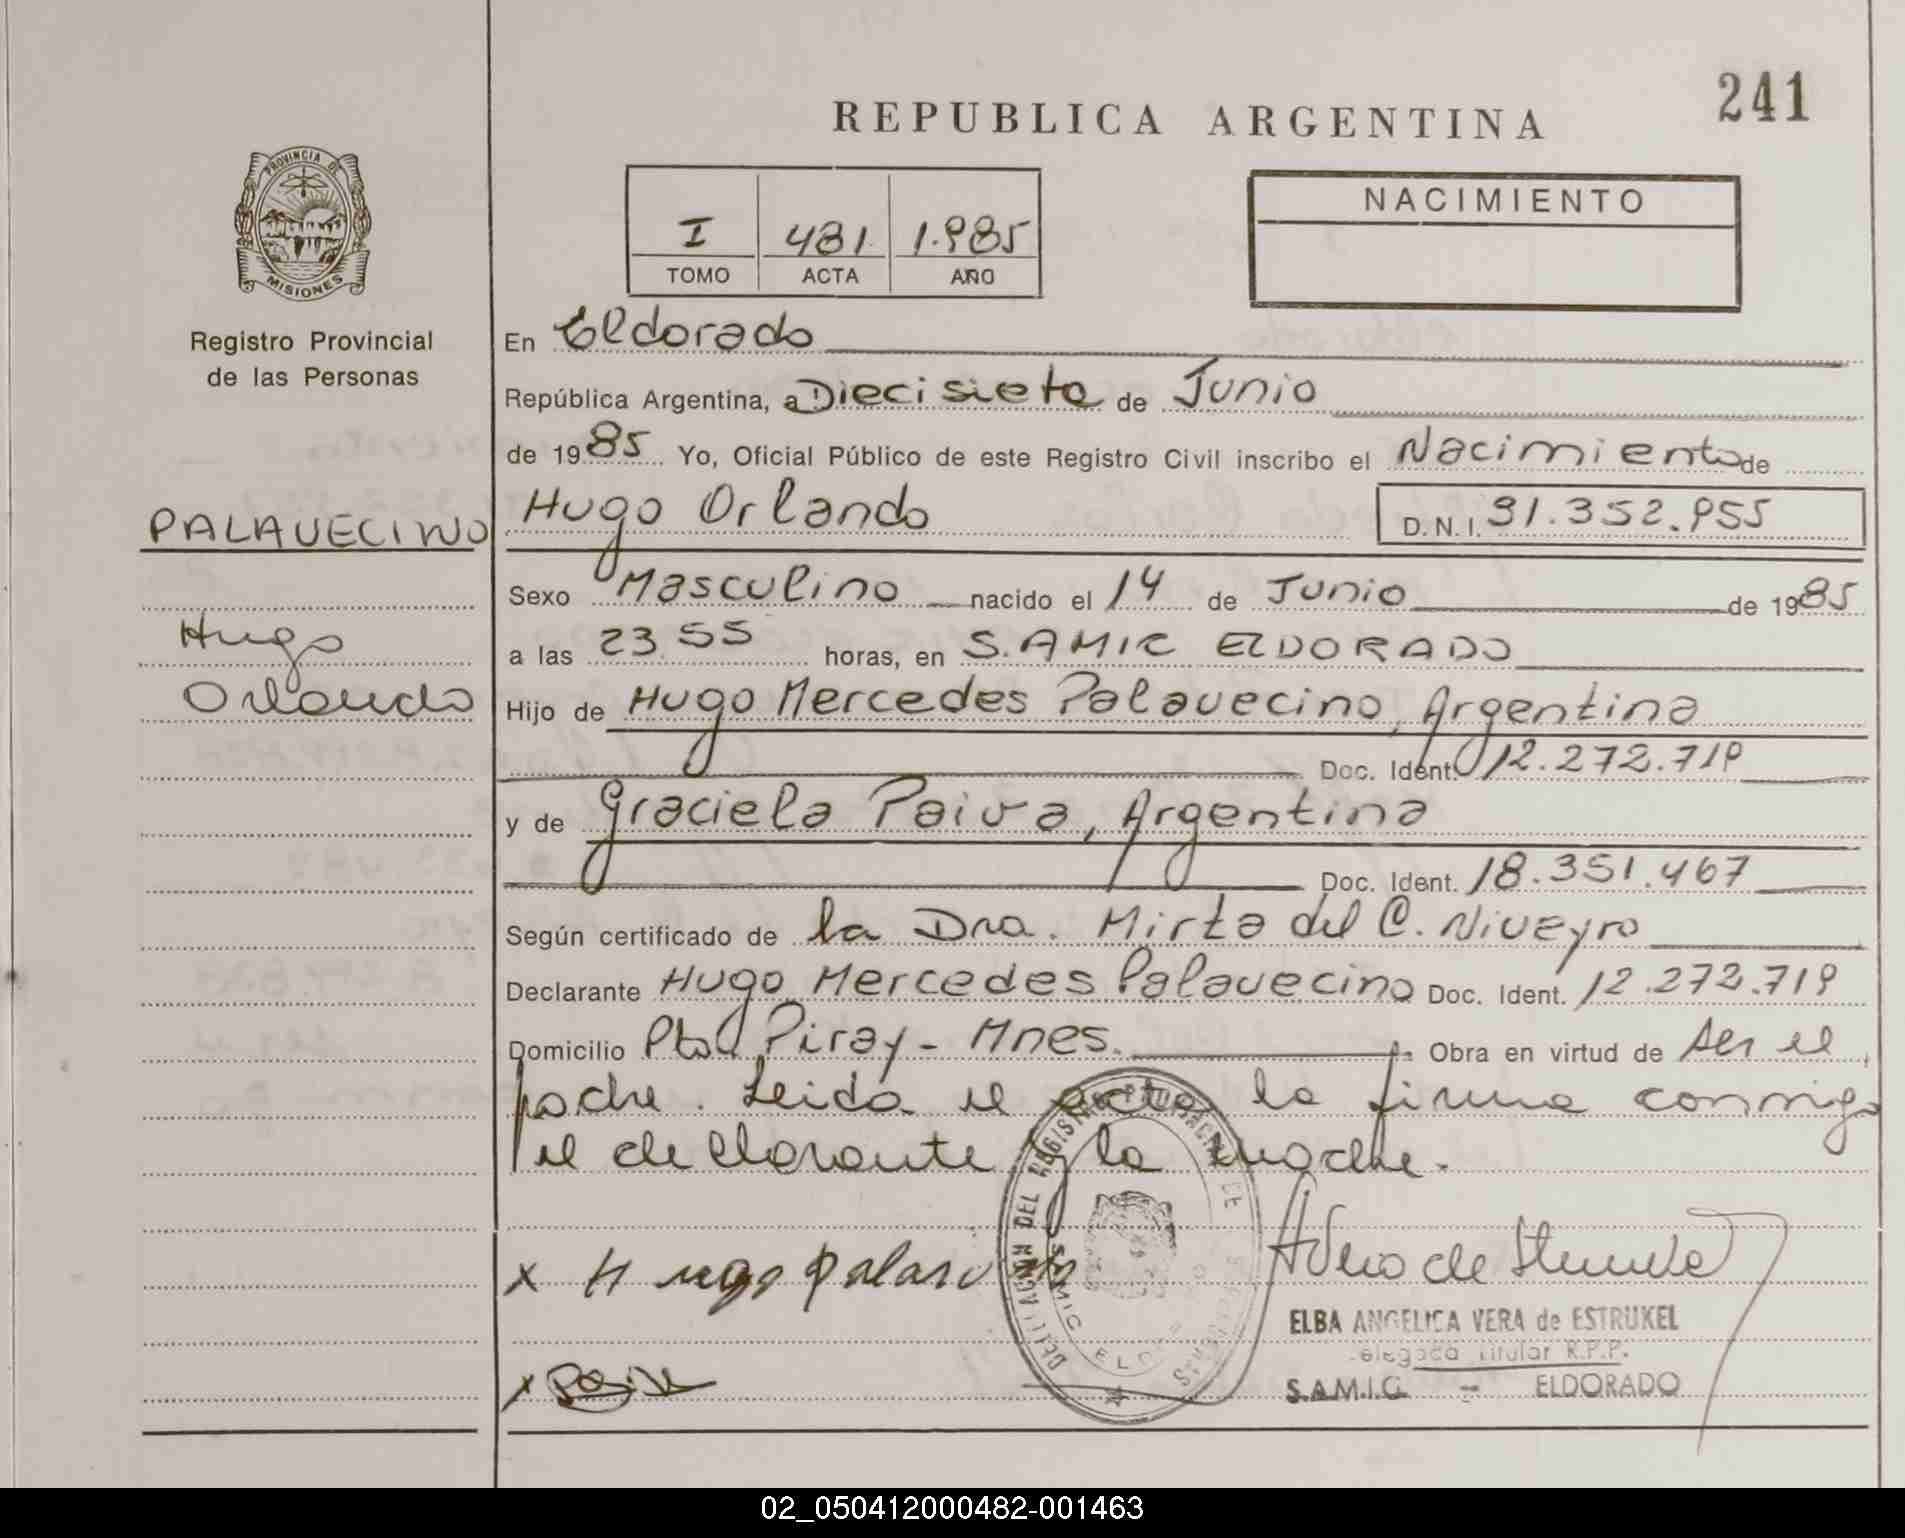 241
REPUBLICA ARGENTINA
PROVINCIA DE
MISIONES
Registro Provincial
de las Personas
I 481 1.985
TOMO ACTA AÑO
NACIMIENTO
En Eldorado
República Argentina, a Diecisiete de Junio
de 1985 Yo, Oficial Público de este Registro Civil inscribo el Nacimiento de
PALAVECINO
Hugo
Orlando
Hugo Orlando D.N.I. 31.352.955
Sexo Masculino nacido el 14 de Junio de 1985
a las 23 55 horas, en S.AMIC ELDORADO
Hijo de Hugo Mercedes Palavecino, Argentina
Doc. Ident. 12.272.719
y de Graciela Paiva, Argentina
Doc. Ident. 18.351.467
Según certificado de la Dra. Mirta del C. Niveyro
Declarante Hugo Mercedes Palavecino Doc. Ident. 12.272.719
Domicilio Pto Piray - Mnes. Obra en virtud de ser el
padre. Leida el acta la firma conmigo
el declarante y la madre.
x Hugo Palavecino
ELBA ANGELICA VERA de ESTRUKEL
Delegada Titular R.P.P.
S.A.M.I.C. - ELDORADO
x Paiva
02_050412000482-001463